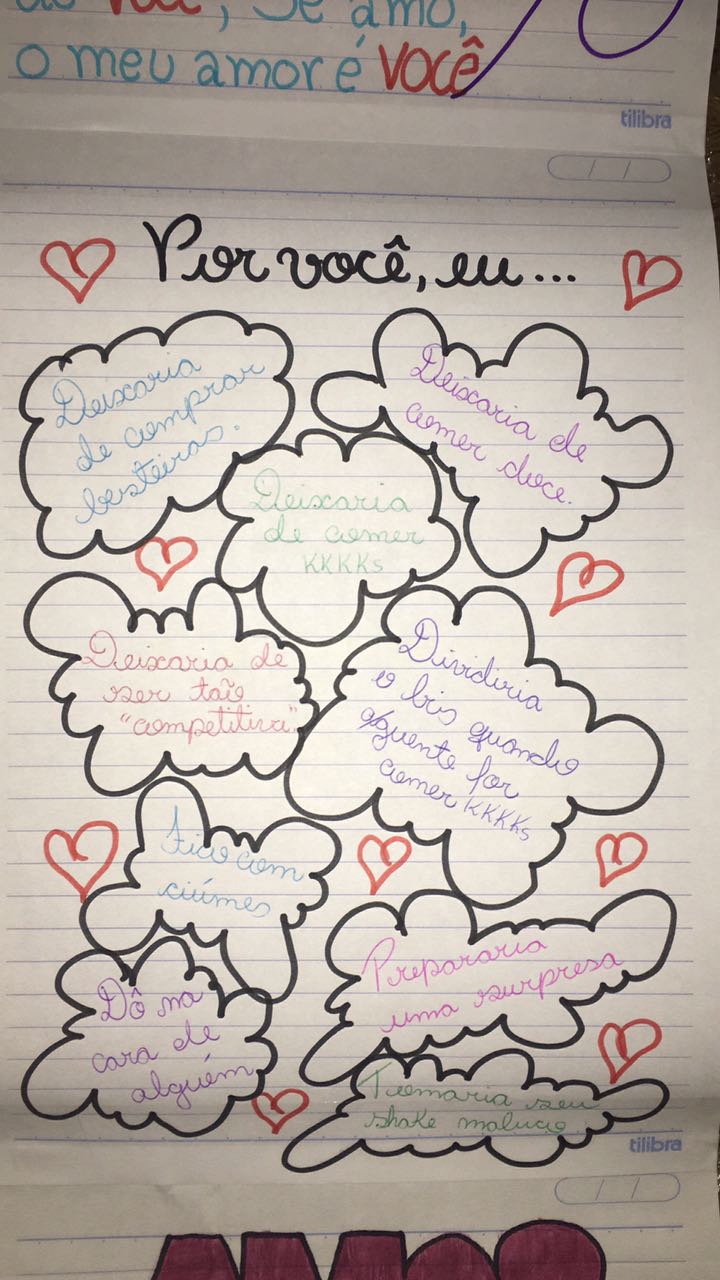 de você, Se amo,
o meu amor é você
tilibra
Por você, eu...
Deixaria
de comprar
besteiras.
Deixaria de
comer doce.
Deixaria
de comer
KKKKs
Deixaria de
ser tão
"competitiva"
Dividiria
o bis quando
agente for
comer KKKKs
Fico com
ciúmes
Prepararia
uma surpresa
Dô na
cara de
alguém
Tomaria seu
shake maluco
tilibra